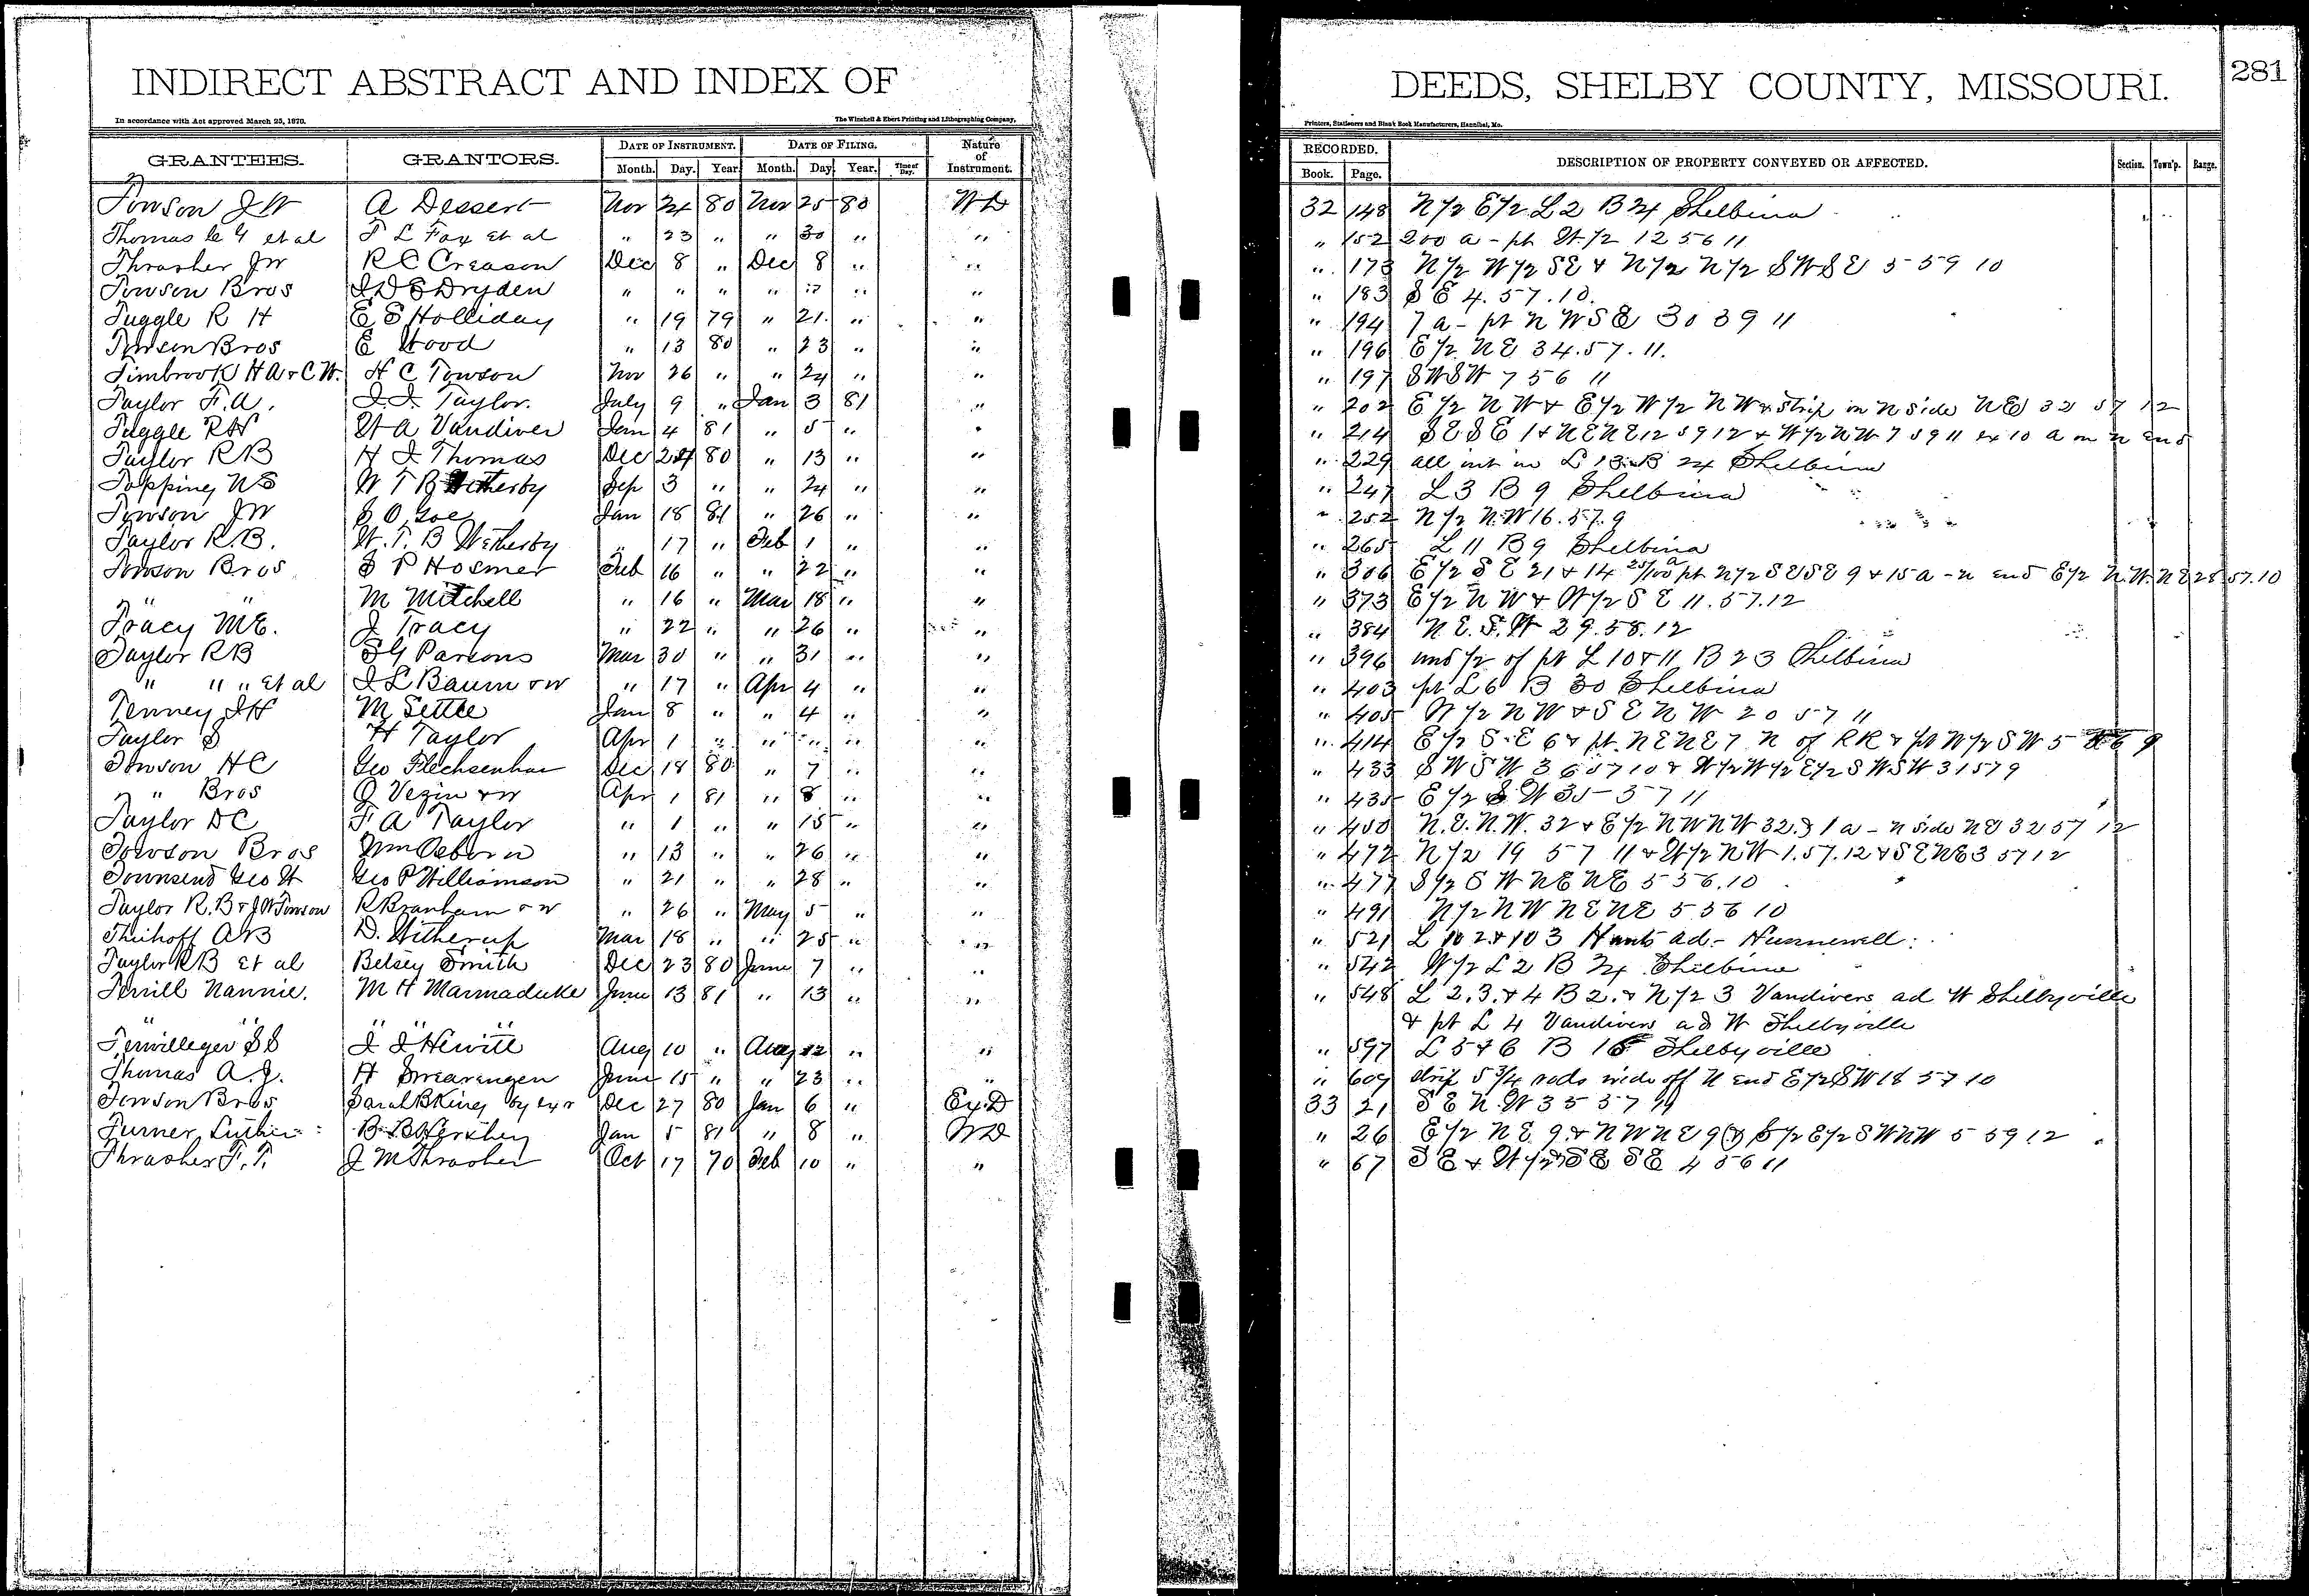 INDIRECT ABSTRACT AND INDEX OF DEEDS, SHELBY COUNTY, MISSOURI. 281
In accordance with Act approved March 25, 1870. The Winchell & Ebert Printing and Lithographing Company, Printers, Stationers and Blank Book Manufacturers, Hannibal, Mo.
GRANTEES. GRANTORS. DATE OF INSTRUMENT. DATE OF FILING. Nature of Instrument. RECORDED. DESCRIPTION OF PROPERTY CONVEYED OR AFFECTED. Section. Town'p. Range.
Month. Day. Year. Month. Day. Year. Time of Day. Book. Page.
Towson J W A Dessert Nov 24 80 Nov 25 80 W D 32 148 N 1/2 E 1/2 L 2 B 24 Shelbina
Thomas et al F L Fay et al " 23 " " 30 " " " 152 200 a - pt W 1/2 12 56 11
Thrasher J W R C Creason Dec 8 " Dec 8 " " " 173 N 1/2 W 1/2 SE & N 1/2 N 1/2 S W S E 5 59 10
Towson Bros J D S Dryden " " " " 17 " " " 183 S E 4. 57. 10.
Tuggle R H E S Holliday " 19 79 " 21 " " " 194 7 a - pt N W S E 30 39 11
Towson Bros E Wood " 13 80 " 23 " " " 196 E 1/2 N E 34. 57. 11.
Timbrook H A & C W. H C Towson Nov 26 " " 24 " " " 197 S W S W 7 56 11
Taylor F. A. J. J. Taylor. July 9 " Jan 3 81 " " 202 E 1/2 N W & E 1/2 W 1/2 N W & strip on N side N E 32 57 12
Tuggle R H W A Vandiver Jan 4 81 " 5 " " " 214 S E S E 1 & N E N E 12 59 12 & W 1/2 N W 7 59 11 ex 10 a on n end
Taylor R B H J Thomas Dec 24 80 " 13 " " " 229 all int in L 13 B 24 Shelbina
Topping N S W T B Wetherby Sep 3 " " 24 " " " 247 L 3 B 9 Shelbina
Towson J W S O Goe Jan 18 81 " 26 " " " 252 N 1/2 N. W 16. 57. 9
Taylor R. B. W. T. B Wetherby " 17 " Feb 1 " " " 265 L 11 B 9 Shelbina
Towson Bros S P Hosmer Feb 16 " " 22 " " " 306 E 1/2 S E 21 & 14 25/100 a pt N 1/2 S E S E 9 & 15 a - n end E 1/2 N. W. N E 28 57. 10
" " M Mitchell " 16 " Mar 18 " " " 373 E 1/2 N W & W 1/2 S E 11. 57. 12
Tracy M E. J Tracy " 22 " " 26 " " " 384 N. E. S. W 29. 58. 12
Taylor R B S G Parsons Mar 30 " " 31 " " " 396 und 1/2 of pt L 10 & 11 B 23 Shelbina
" " " et al J L Baum & W " 17 " Apr 4 " " " 403 pt L 6 B 30 Shelbina
Tenney J H M Settle Jan 8 " " 4 " " " 405 W 1/2 N W & S E N W 20 57 11
Taylor S H Taylor Apr 1 " " " " " " 414 E 1/2 S. E 6 & pt. N E N E 7 N of R R & pt W 1/2 S W 5
Towson H C Geo Dec 18 80 " 7 " " " 433 S W S W 36 57 10 & W 1/2 W 1/2 E 1/2 S W S W 31 57 9
" " Bros O Vezin & W Apr 1 81 " 8 " " " 435 E 1/2 S W 35 57 11
Taylor D C F A Taylor " 1 " " 15 " " " 450 N. E. N. W. 32 & E 1/2 N W N W 32. & 1 a - n side N E 32 57 12
Towson Bros Wm Osborn " 13 " " 26 " " " 472 N 1/2 19 57 11 & W 1/2 N W 1. 57. 12 & S E N E 3 57 12
Townsend Geo W Geo P Williamson " 21 " " 28 " " " 477 S 1/2 S W N E N E 5 56. 10
Taylor R. B & J W Towson R Branham & W " 26 " May 5 " " " 491 N 1/2 N W N E N E 5 56 10
Theihoff A B D. Witherup Mar 18 " " 25 " " " 521 L 102 & 103 Hunts ad - Hunnewell
Taylor R B et al Betsey Smith Dec 23 80 June 7 " " " 542 W 1/2 L 2 B 24 Shelbina
Terrill Nannie. M H Marmaduke June 13 81 " 13 " " " 548 L 2. 3. & 4 B 2. & N 1/2 3 Vandivers ad W Shelbyville
" " " " " & pt L 4 Vandivers ad W Shelbyville
Terwilleger S S J J Hewitt Aug 10 " Aug 12 " " " 597 L 5 & 6 B 16 Shelbyville
Thomas A. J. H Swearengen June 15 " " 23 " " " 609 strip 5 3/4 rods wide off N end E 1/2 S W 18 57 10
Towson Bros Sarah B King by exr Dec 27 80 Jan 6 " Ex. D 33 21 S E N. W 35 57 11
Turner Luther B B Hershey Jan 5 81 " 8 " W D " 26 E 1/2 N E 9. & N W N E 9 & S 1/2 E 1/2 S W N W 5 59 12
Thrasher F. T. J M Thrasher Oct 17 70 Feb 10 " " " 67 S E & W 1/2 S E S E 4 56 11